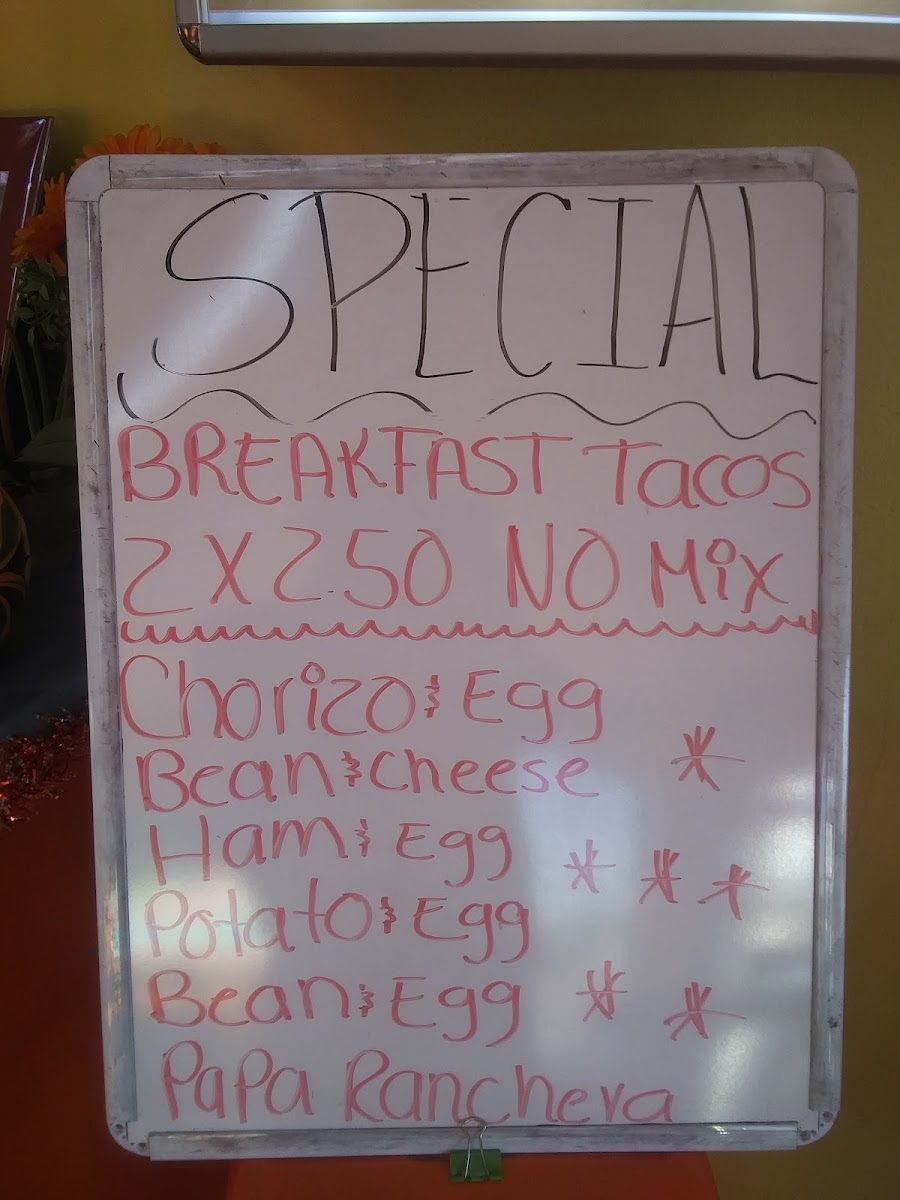 SPECIAL
BREAKFAST Tacos
2 X 2.50 NO Mix
Chorizo & Egg
Bean & Cheese *
Ham & Egg * * *
Potato & Egg
Bean & Egg * *
PaPa Ranchera